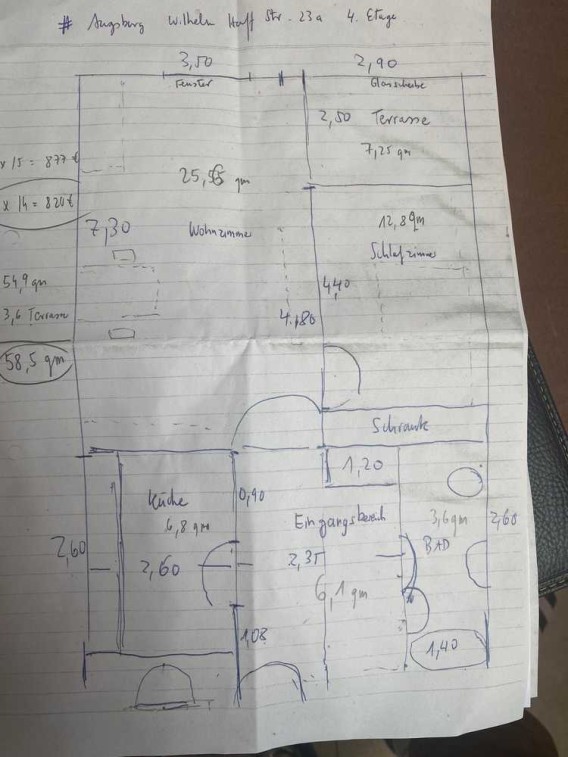 # Augsburg Wilhelm Hauff Str. 23a 4. Etage
3,50 2,90
Fenster Glasscheibe
2,50 Terrasse
7,25 qm
x 15 = 877 €
25,55 qm
x 14 = 820 €
12,8 qm
7,30 Wohnzimmer
Schlafzimmer
54,9 qm
4,40
3,6 Terrasse
4,80
58,5 qm
Schrank
1,20
Küche 0,90
6,8 qm Eingangsbereich 3,6 qm 2,60
2,60 2,60 2,35 BAD
6,1 qm
1,08 1,40